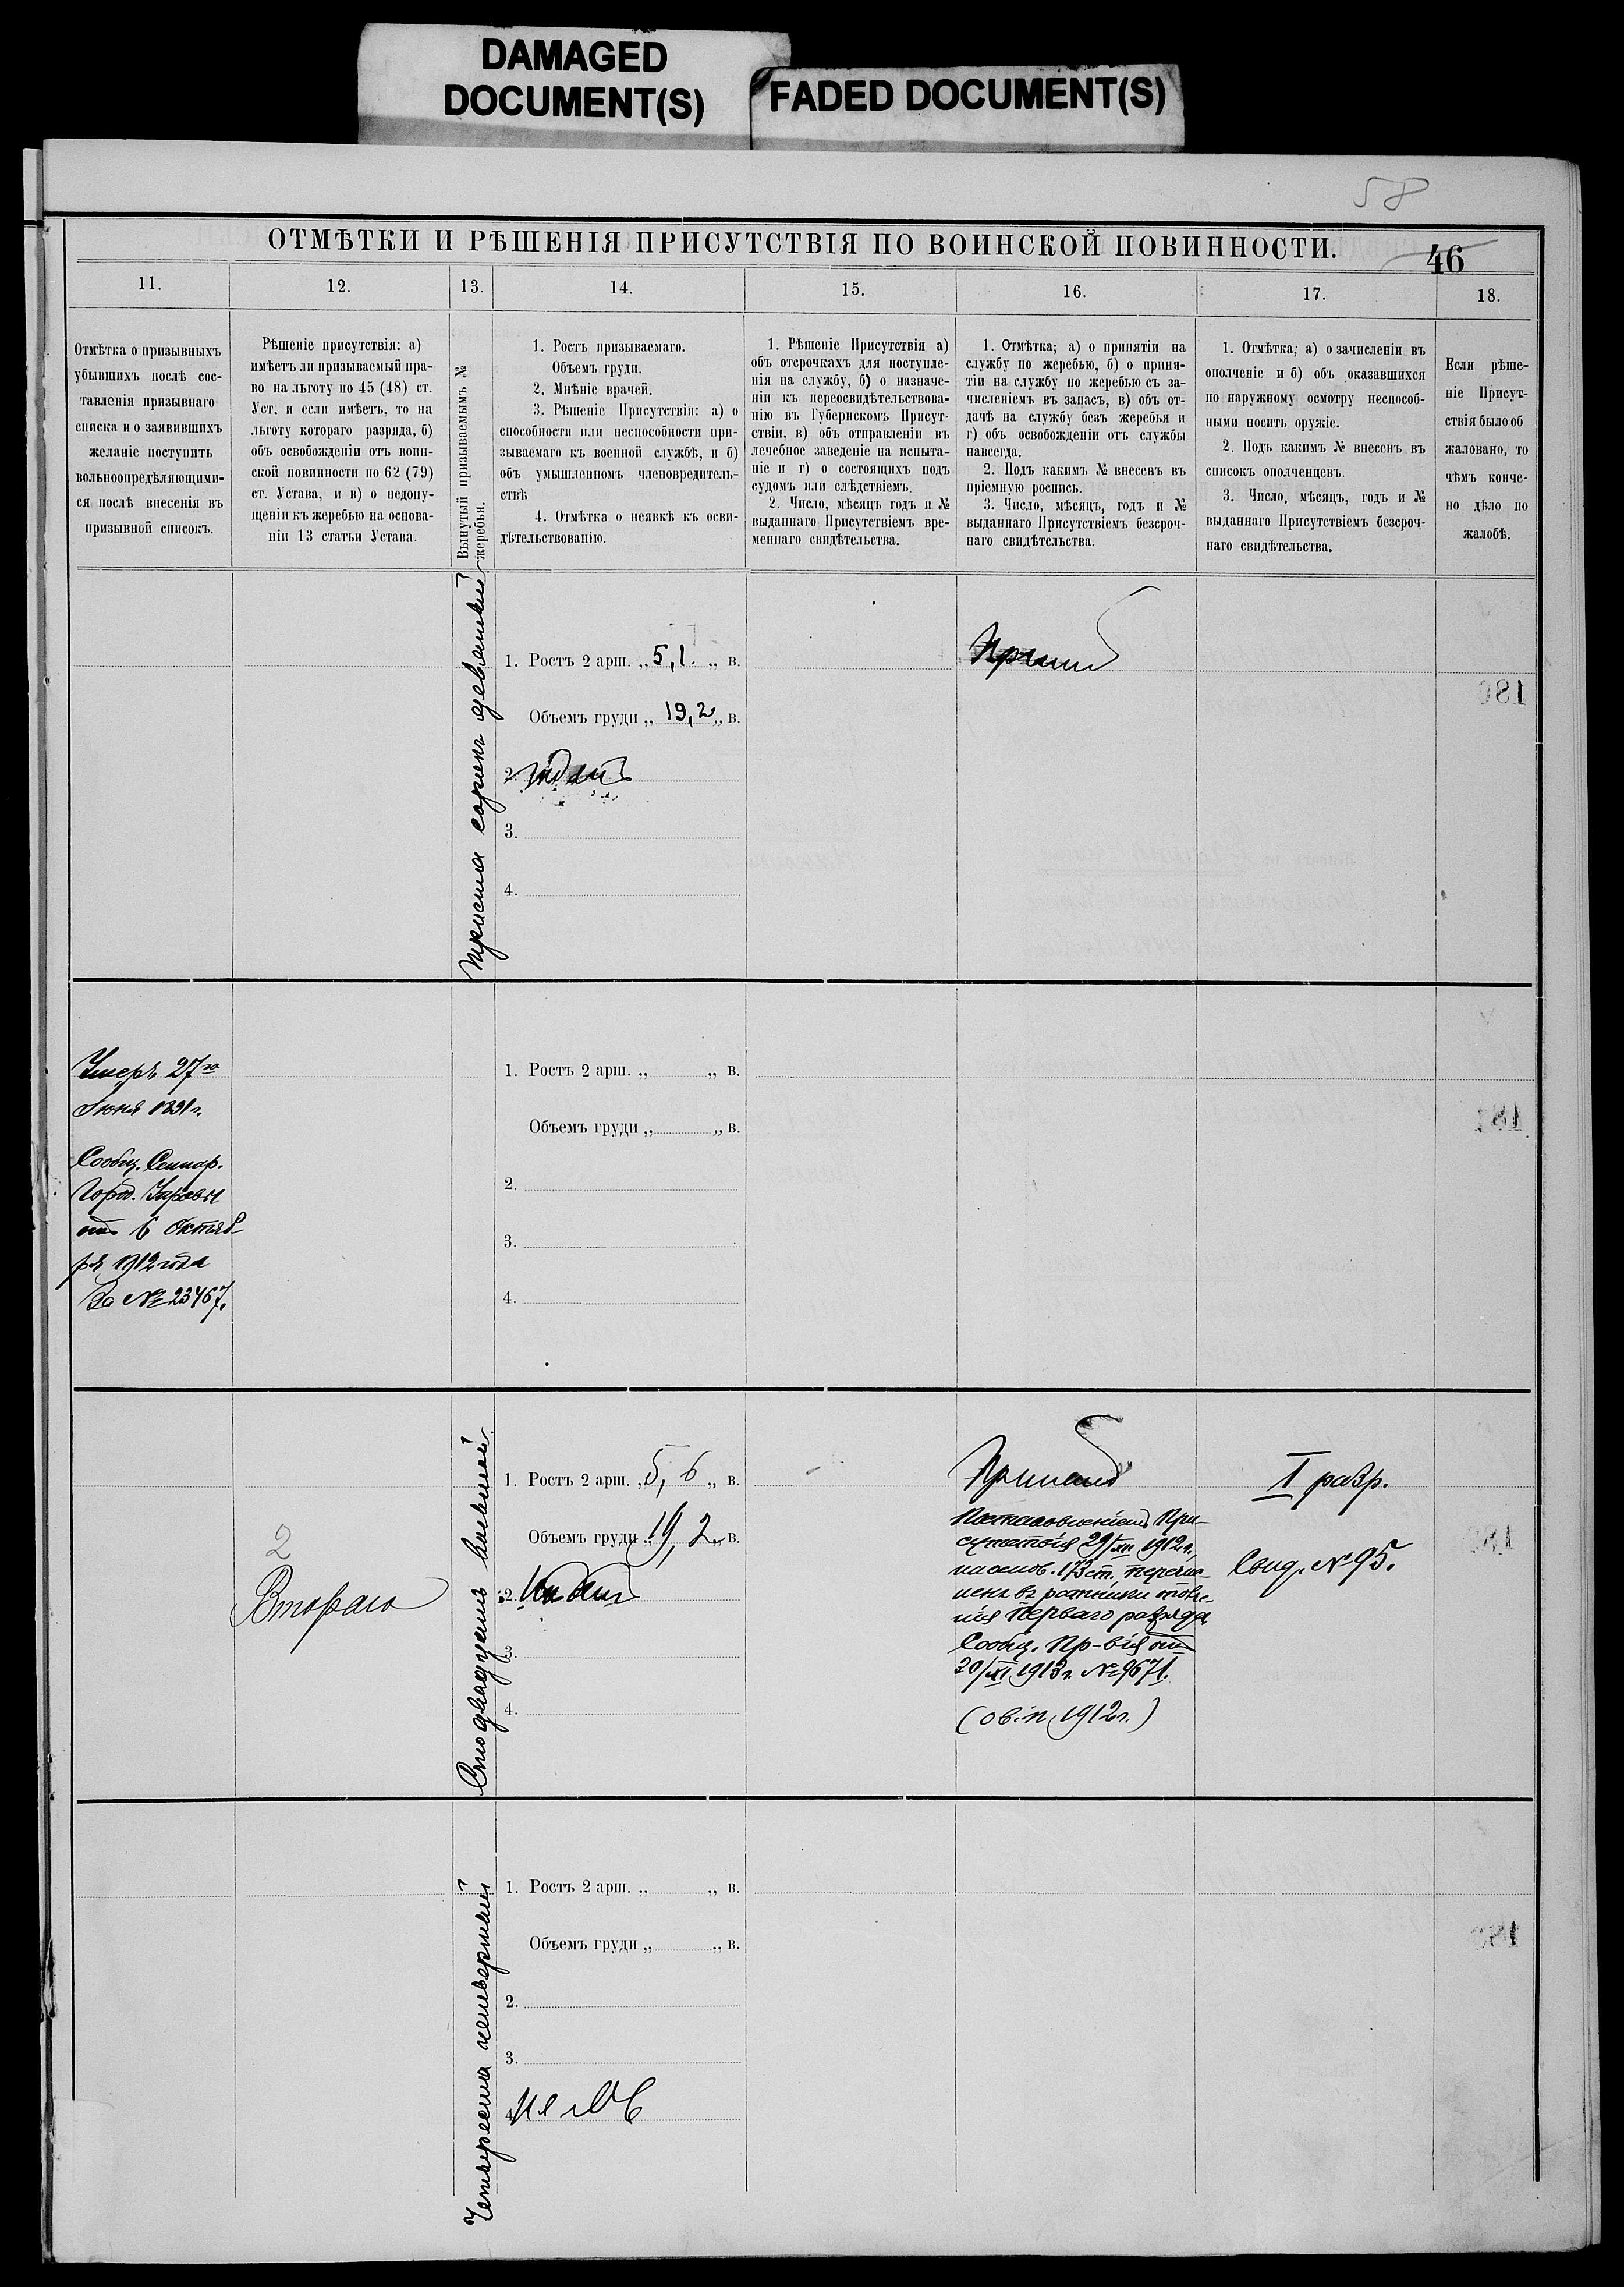 DAMAGED
DOCUMENT(S)
FADED DOCUMENT(S)
58
ОТМѢТКИ И РѢШЕНІЯ ПРИСУТСТВІЯ ПО ВОИНСКОЙ ПОВИННОСТИ.
46
11.
12.
13.
14.
15.
16.
17.
18.
Отмѣтка о призывныхъ
убывшихъ послѣ сос-
тавленія призывнаго
списка и о заявившихъ
желаніе поступить
вольноопредѣляющими-
ся послѣ внесенія въ
призывной списокъ.
Рѣшеніе присутствія: а)
имѣетъ ли призываемый пра-
во на льготу по 45 (48) ст.
Уст. и если имѣетъ, то на
льготу котораго разряда, б)
объ освобожденіи отъ воин-
ской повинности по 62 (79)
ст. Устава, и в) о недопу-
щеніи къ жеребью на основа-
ніи 13 статьи Устава.
Вынутый призываемымъ №
жеребья.
1. Ростъ призываемаго.
Объемъ груди.
2. Мнѣніе врачей.
3. Рѣшеніе Присутствія: а) о
способности или неспособности при-
зываемаго къ военной службѣ, и б)
объ умышленномъ членовредитель-
ствѣ
4. Отмѣтка о неявкѣ къ осви-
дѣтельствованію.
1. Рѣшеніе Присутствія а)
объ отсрочкахъ для поступле-
нія на службу, б) о назначе-
ніи къ переосвидѣтельствова-
нію въ Губернскомъ Присут-
ствіи, в) объ отправленіи въ
лечебное заведеніе на испыта-
ніе и г) о состоящихъ подъ
судомъ или слѣдствіемъ.
2. Число, мѣсяцъ годъ и №
выданнаго Присутствіемъ вре-
меннаго свидѣтельства.
1. Отмѣтка; а) о принятіи на
службу по жеребью, б) о приня-
тіи на службу по жеребью съ за-
численіемъ въ запасъ, в) объ от-
дачѣ на службу безъ жеребья и
г) объ освобожденіи отъ службы
навсегда.
2. Подъ какимъ № внесенъ въ
пріемную роспись.
3. Число, мѣсяцъ, годъ и №
выданнаго Присутствіемъ безсроч-
наго свидѣтельства.
1. Отмѣтка; а) о зачисленіи въ
ополченіе и б) объ оказавшихся
по наружному осмотру неспособ-
ными носить оружіе.
2. Подъ какимъ № внесенъ въ
списокъ ополченцевъ.
3. Число, мѣсяцъ, годъ и №
выданнаго Присутствіемъ безсроч-
наго свидѣтельства.
Если рѣше-
ніе Присут-
ствія было об
жаловано, то
чѣмъ конче-
но дѣло по
жалобѣ.
Триста сорокъ девятый
1. Ростъ 2 арш. „ 5,1. „ в.
Объемъ груди „ 19,2 „ в.
2. годенъ
3.
4.
Принятъ
Умеръ 27го
Іюня 1891г.
Сообщ.
Город. Управы
отъ 6 Октяб-
ря 1912 года
За № 23467.
1. Ростъ 2 арш. „ „ в.
Объемъ груди „ „ в.
2.
3.
4.
2
Втораго
Сто двадцать восьмой
1. Ростъ 2 арш. „ 5,6 „ в.
Объемъ груди „ 19,2 „ в.
2. годенъ
3.
4.
Принятъ
Постановленіемъ При-
сутствія 29/XII 1912г.
на основ. 173 ст. перечис-
ленъ въ ратники ополче-
нія перваго разряда
Сообщ. Пр-вія отъ
20/XI 1913г. № 9671.
1912г.)
I разр.
Свид. № 95.
Четыреста четвертый
1. Ростъ 2 арш. „ „ в.
Объемъ груди „ „ в.
2.
3.
4.